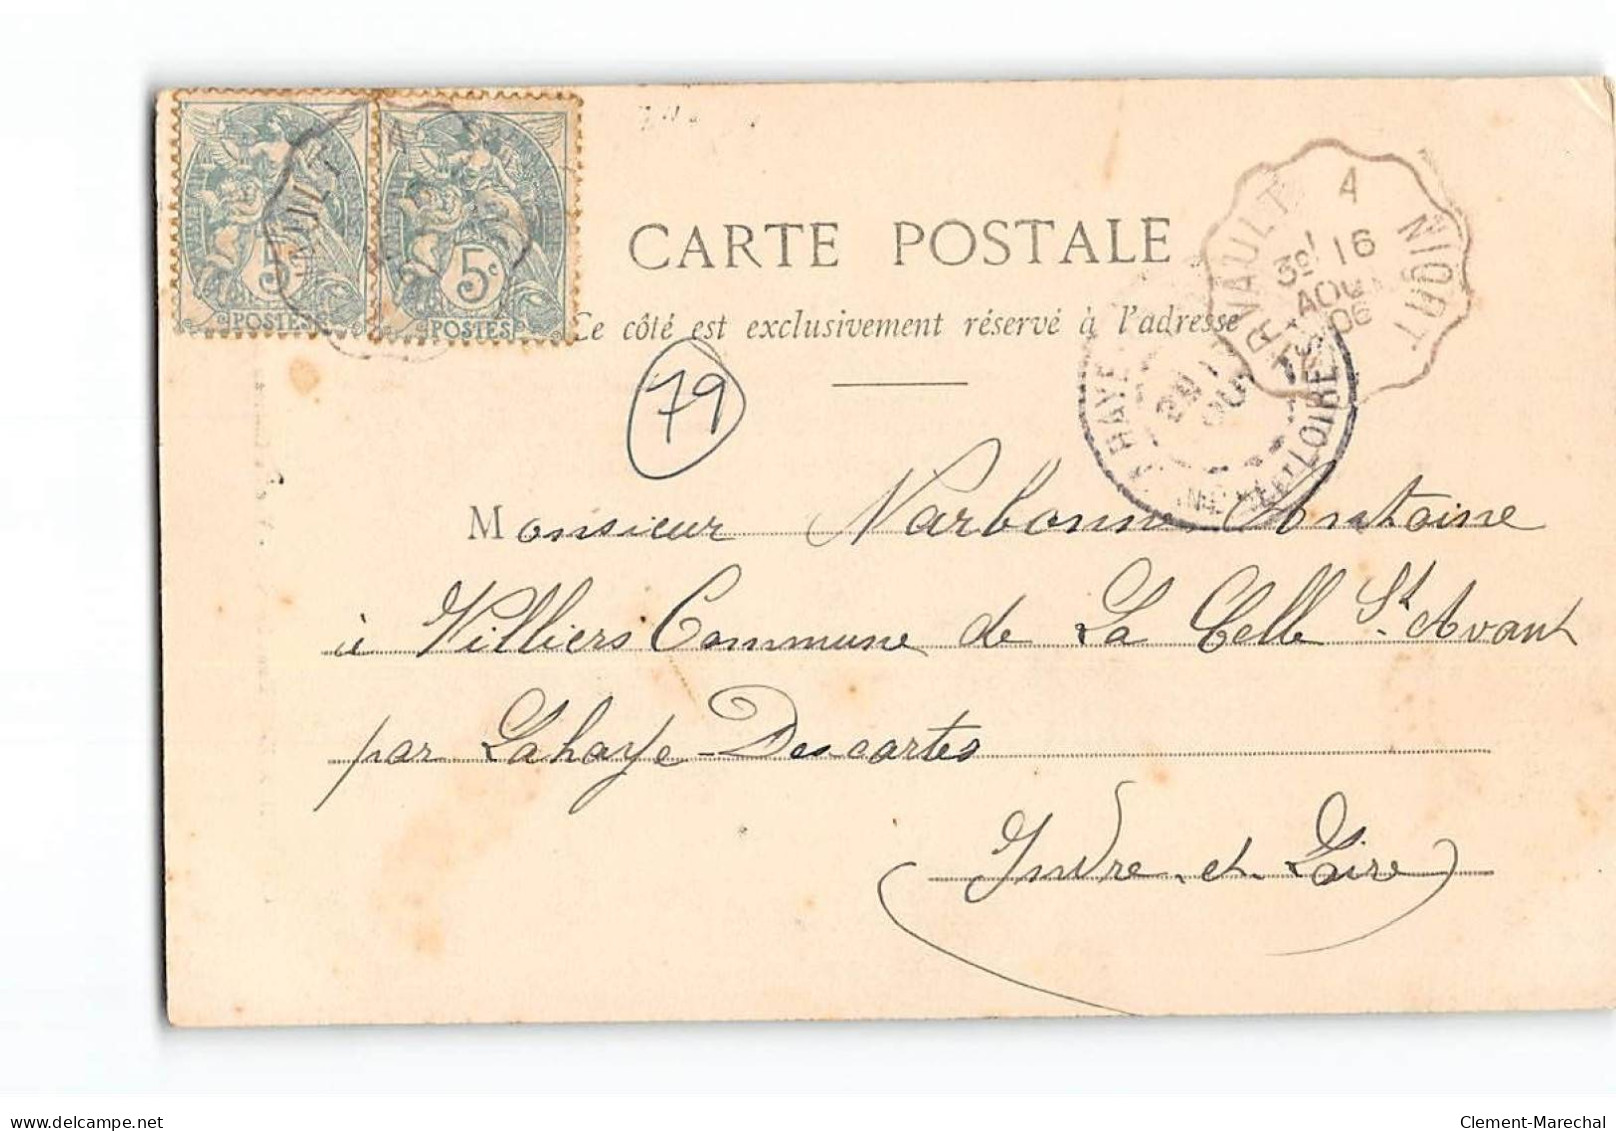 5 POSTES
5c POSTES
CARTE POSTALE
Ce côté est exclusivement réservé à l'adresse
79
RVAULT A NIORT
16
AOUT
06
HAYE
ET LOIRE
Monsieur Narbonne Antoine
à Villiers Commune de La Celle St Avant
par Lahaye-Descartes
Indre et Loire
delcampe.net
Clement-Marechal